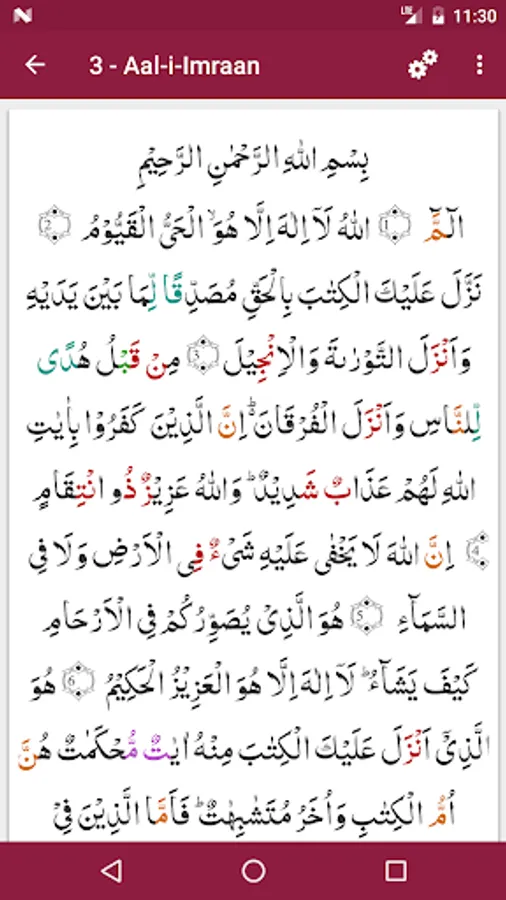 LTE 11:30
3 - Aal-i-Imraan
بِسْمِ اللهِ الرَّحْمٰنِ الرَّحِيْمِ
الٓمَّٓ ۝1 اللهُ لَآ اِلٰهَ اِلَّا هُوَۙ الْحَيُّ الْقَيُّوْمُ ۝2
نَزَّلَ عَلَيْكَ الْكِتٰبَ بِالْحَقِّ مُصَدِّقًا لِّمَا بَيْنَ يَدَيْهِ
وَاَنْزَلَ التَّوْرٰىةَ وَالْاِنْجِيْلَ ۝3 مِنْ قَبْلُ هُدًى
لِّلنَّاسِ وَاَنْزَلَ الْفُرْقَانَ ؕ اِنَّ الَّذِيْنَ كَفَرُوْا بِاٰيٰتِ
اللهِ لَهُمْ عَذَابٌ شَدِيْدٌ ؕ وَاللهُ عَزِيْزٌ ذُو انْتِقَامٍ
۝4 اِنَّ اللهَ لَا يَخْفٰى عَلَيْهِ شَيْءٌ فِي الْاَرْضِ وَلَا فِي
السَّمَآءِ ۝5 هُوَ الَّذِيْ يُصَوِّرُكُمْ فِي الْاَرْحَامِ
كَيْفَ يَشَآءُ ؕ لَآ اِلٰهَ اِلَّا هُوَ الْعَزِيْزُ الْحَكِيْمُ ۝6 هُوَ
الَّذِيْٓ اَنْزَلَ عَلَيْكَ الْكِتٰبَ مِنْهُ اٰيٰتٌ مُّحْكَمٰتٌ هُنَّ
اُمُّ الْكِتٰبِ وَاُخَرُ مُتَشٰبِهٰتٌ ؕ فَاَمَّا الَّذِيْنَ فِيْ